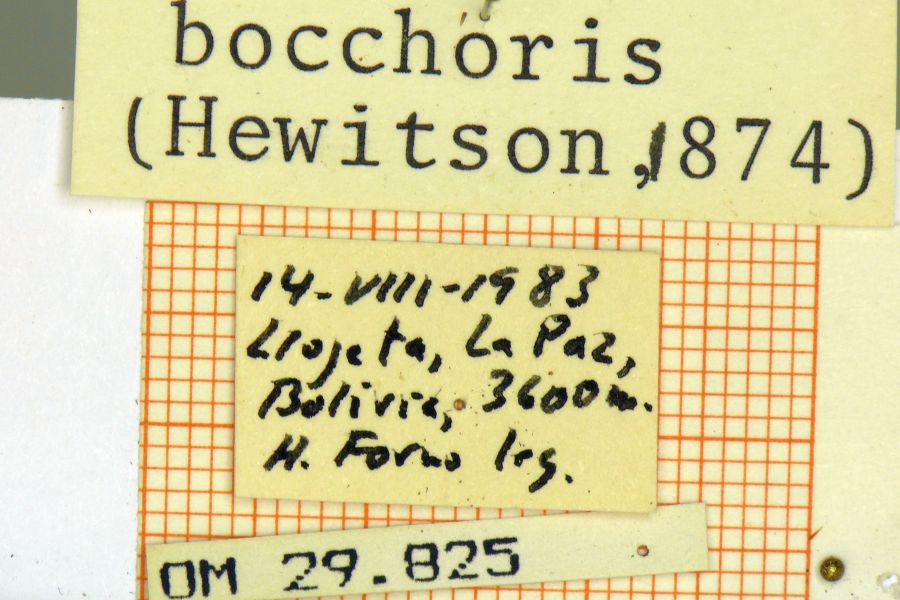 bocchoris
(Hewitson,1874)
14-VIII-1983
Llojeta, La Paz,
Bolivia, 3600m.
H. Forno leg.
OM 29.825